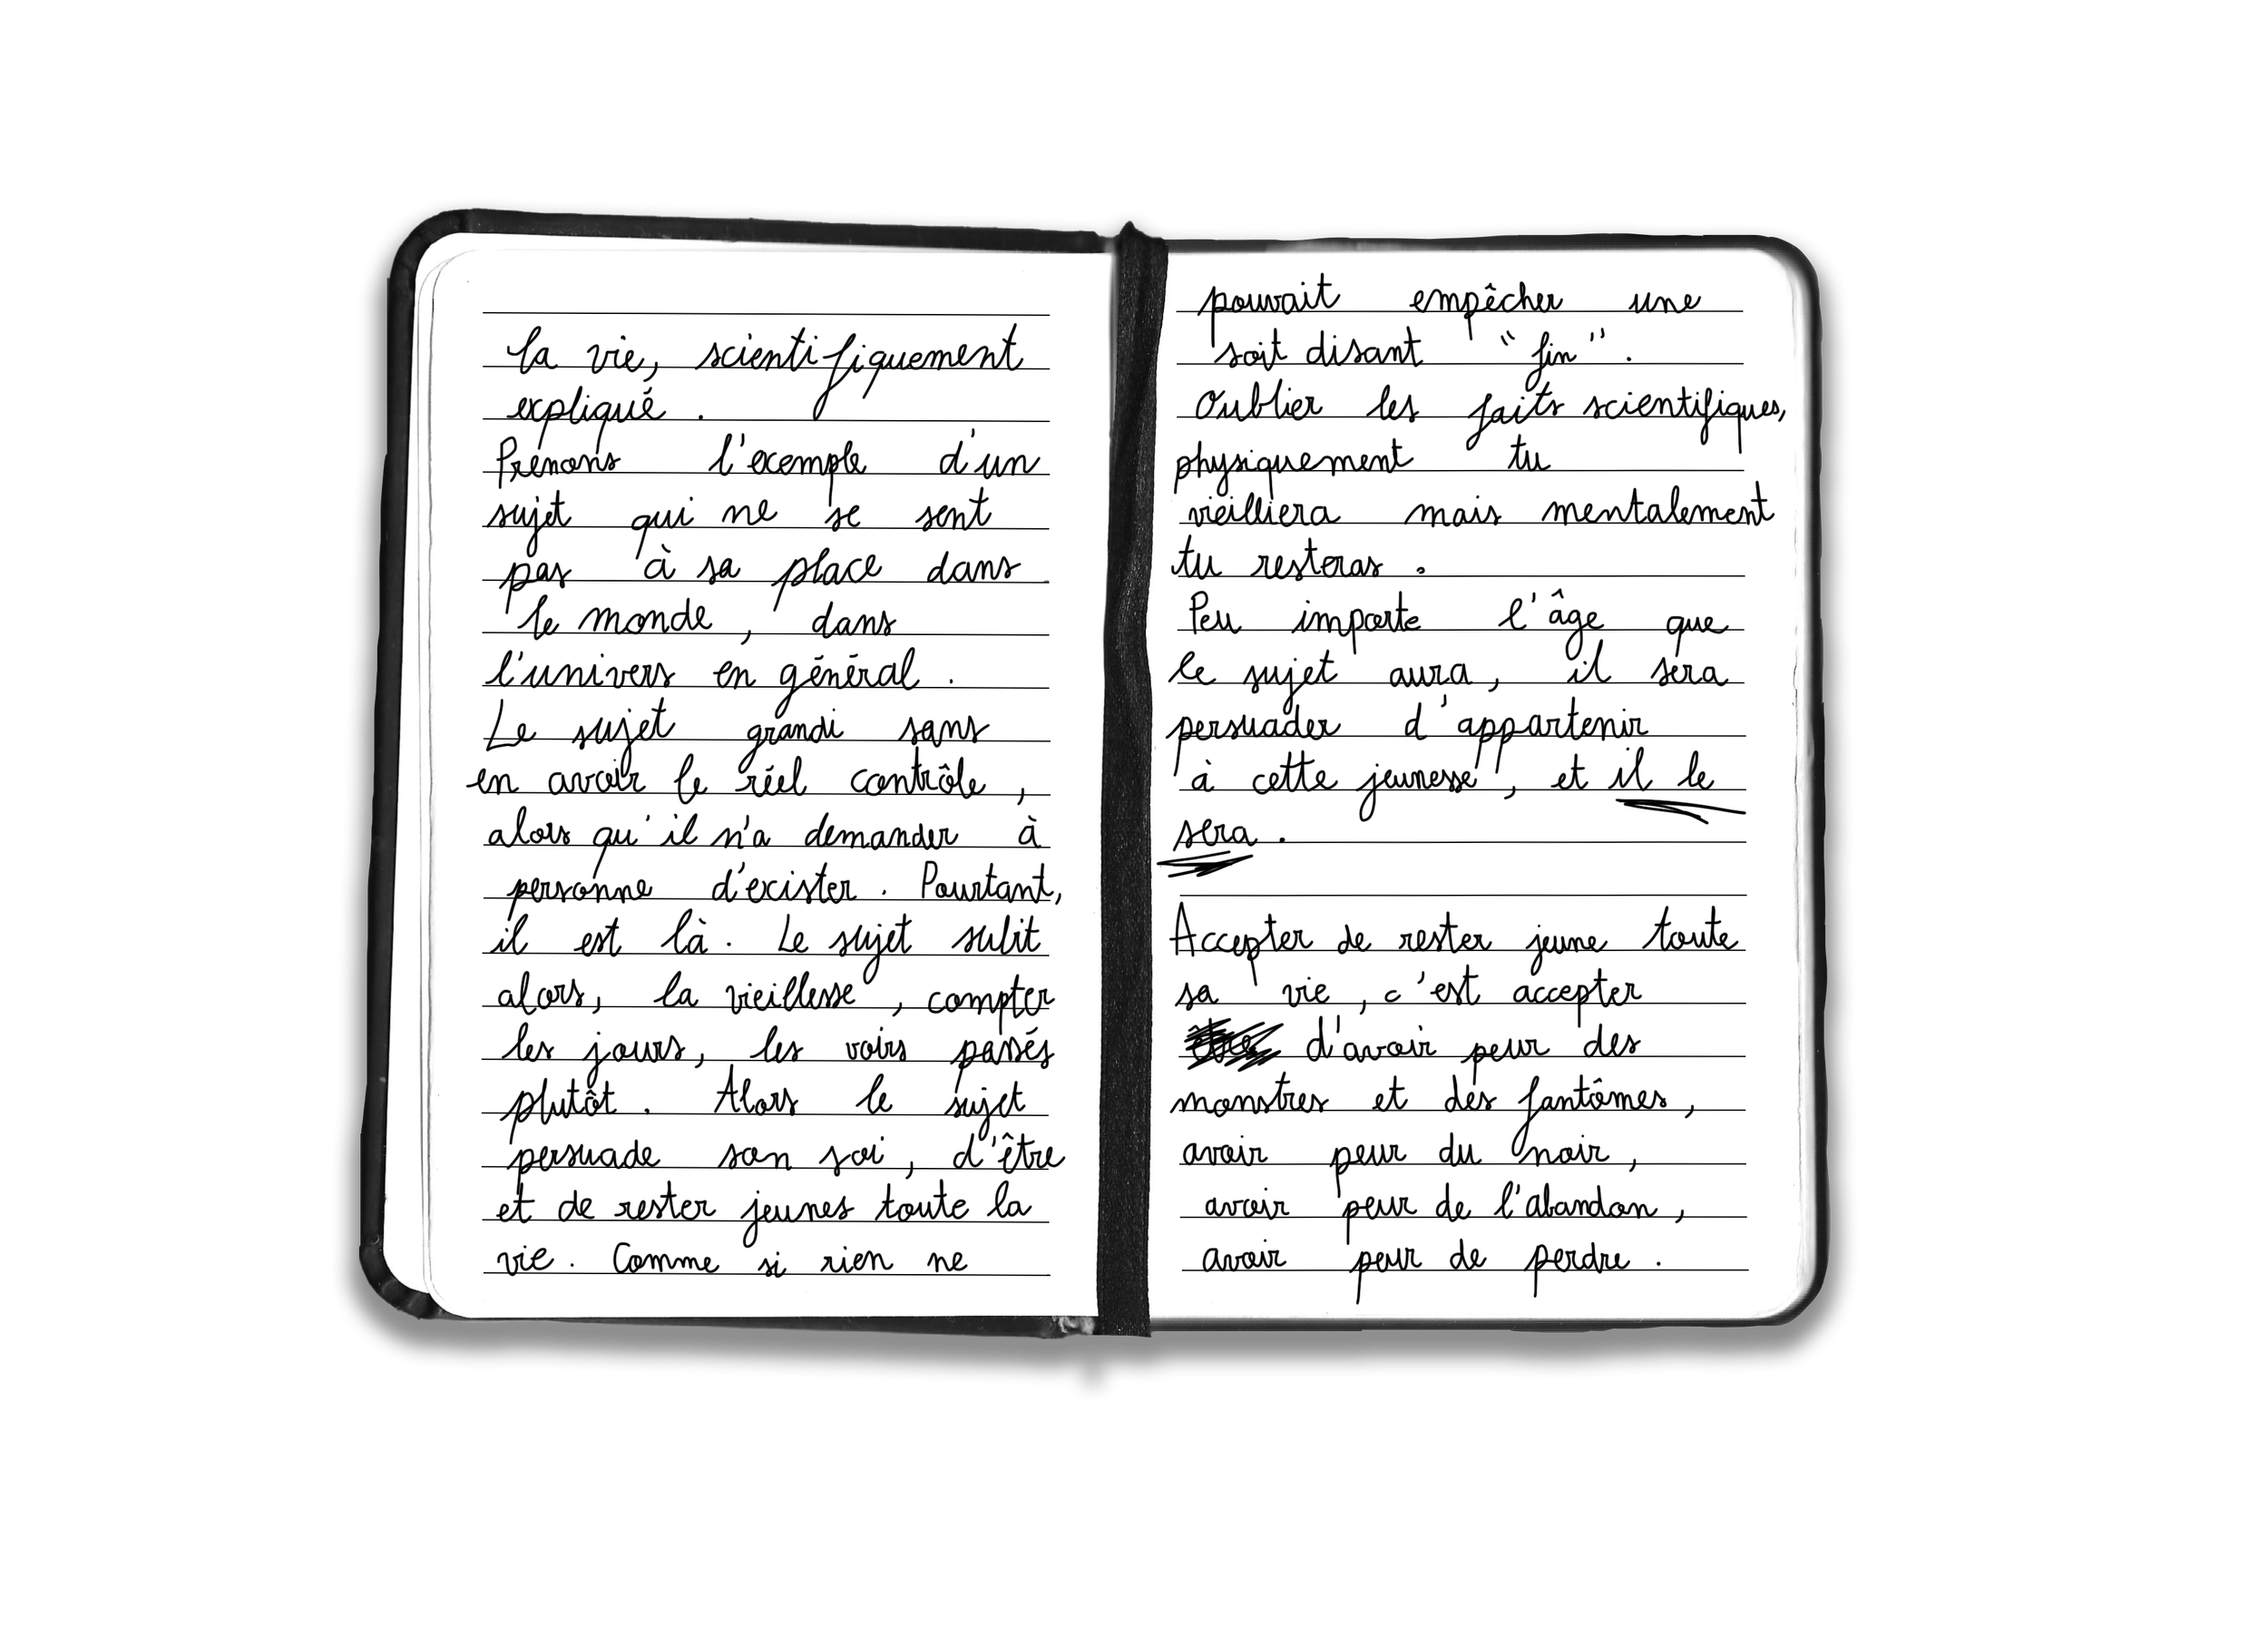 la vie, scientifiquement
expliqué.
Prénons l'exemple d'un
sujet qui ne se sent
pas à sa place dans
le monde, dans
l'univers en général.
Le sujet grandi sans
en avoir le réel contrôle,
alors qu'il n'a demander à
personne d'exister. Pourtant,
il est là. Le sujet subit
alors, la vieillesse, compter
les jours, les voirs passés
plutôt. Alors le sujet
persuade son soi, d'être
et de rester jeunes toute la
vie. Comme si rien ne
pouvait empêcher une
soit disant "fin".
Oublier les faits scientifiques,
physiquement tu
vieilliera mais mentalement
tu resteras.
Peu importe l'âge que
le sujet aura, il sera
persuader d'appartenir
à cette jeunesse, et il le
sera.
Accepter de rester jeune toute
sa vie, c'est accepter
d'avoir peur des
monstres et des fantômes,
avoir peur du noir,
avoir peur de l'abandon,
avoir peur de perdre.